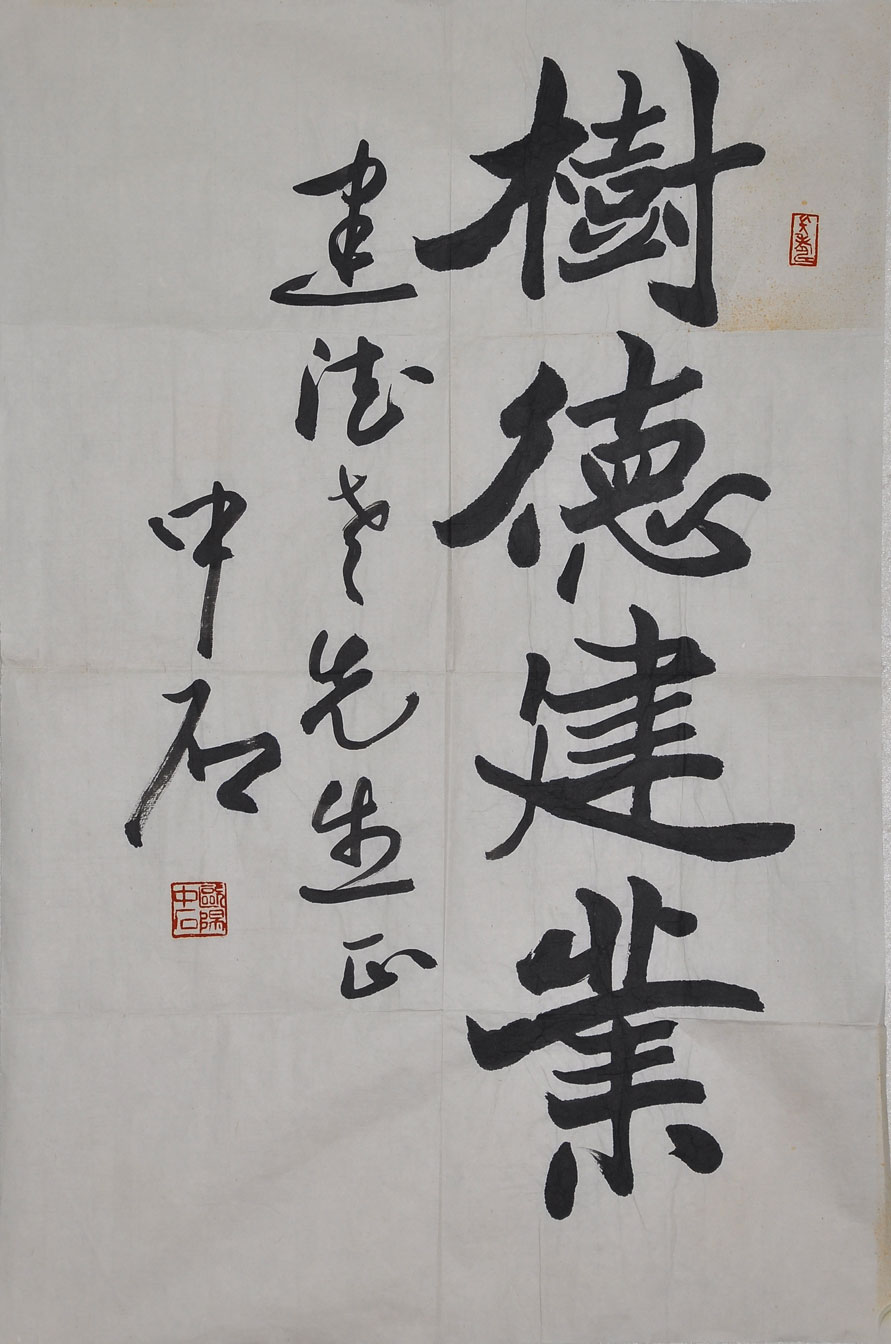 樹德建業
建法老先生正
中石
歐陽中石